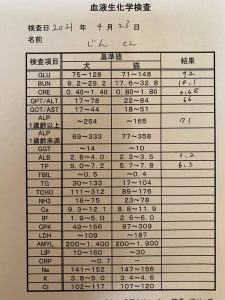 血液生化学検査
検査日 2021 年 4 月 23 日
名前 じん くん
検査項目 基準値
犬 猫
GLU 75~128 71~148 92
BUN 9.2~29.2 17.6~32.8 18.1
CRE 0.40~1.40 0.80~1.80 0.68
GPT/ALT 17~78 22~84 66
GOT/AST 17~44 18~51
ALP 1歳齢以上 ~254 ~165 71
ALP 1歳齢未満 69~333 77~358
GGT ~14 ~10
ALB 2.6~4.0 2.3~3.5 3.2
TP 5.0~7.2 5.7~7.8 6.3
TBIL ~0.5 ~0.4
TG 30~133 17~104
TCHO 111~312 89~176
NH3 16~75 23~78
Ca 9.3~12.1 8.8~11.9
IP 1.9~5.0 2.6~6.0
CPK 49~166 87~309
LDH ~109 ~187
AMYL 200~1,400 200~1,900
LIP 10~160 ~30
CRP ~0.7 -
Na 141~152 147~156
K 3.8~5.0 3.4~4.6
Cl 102~117 107~120